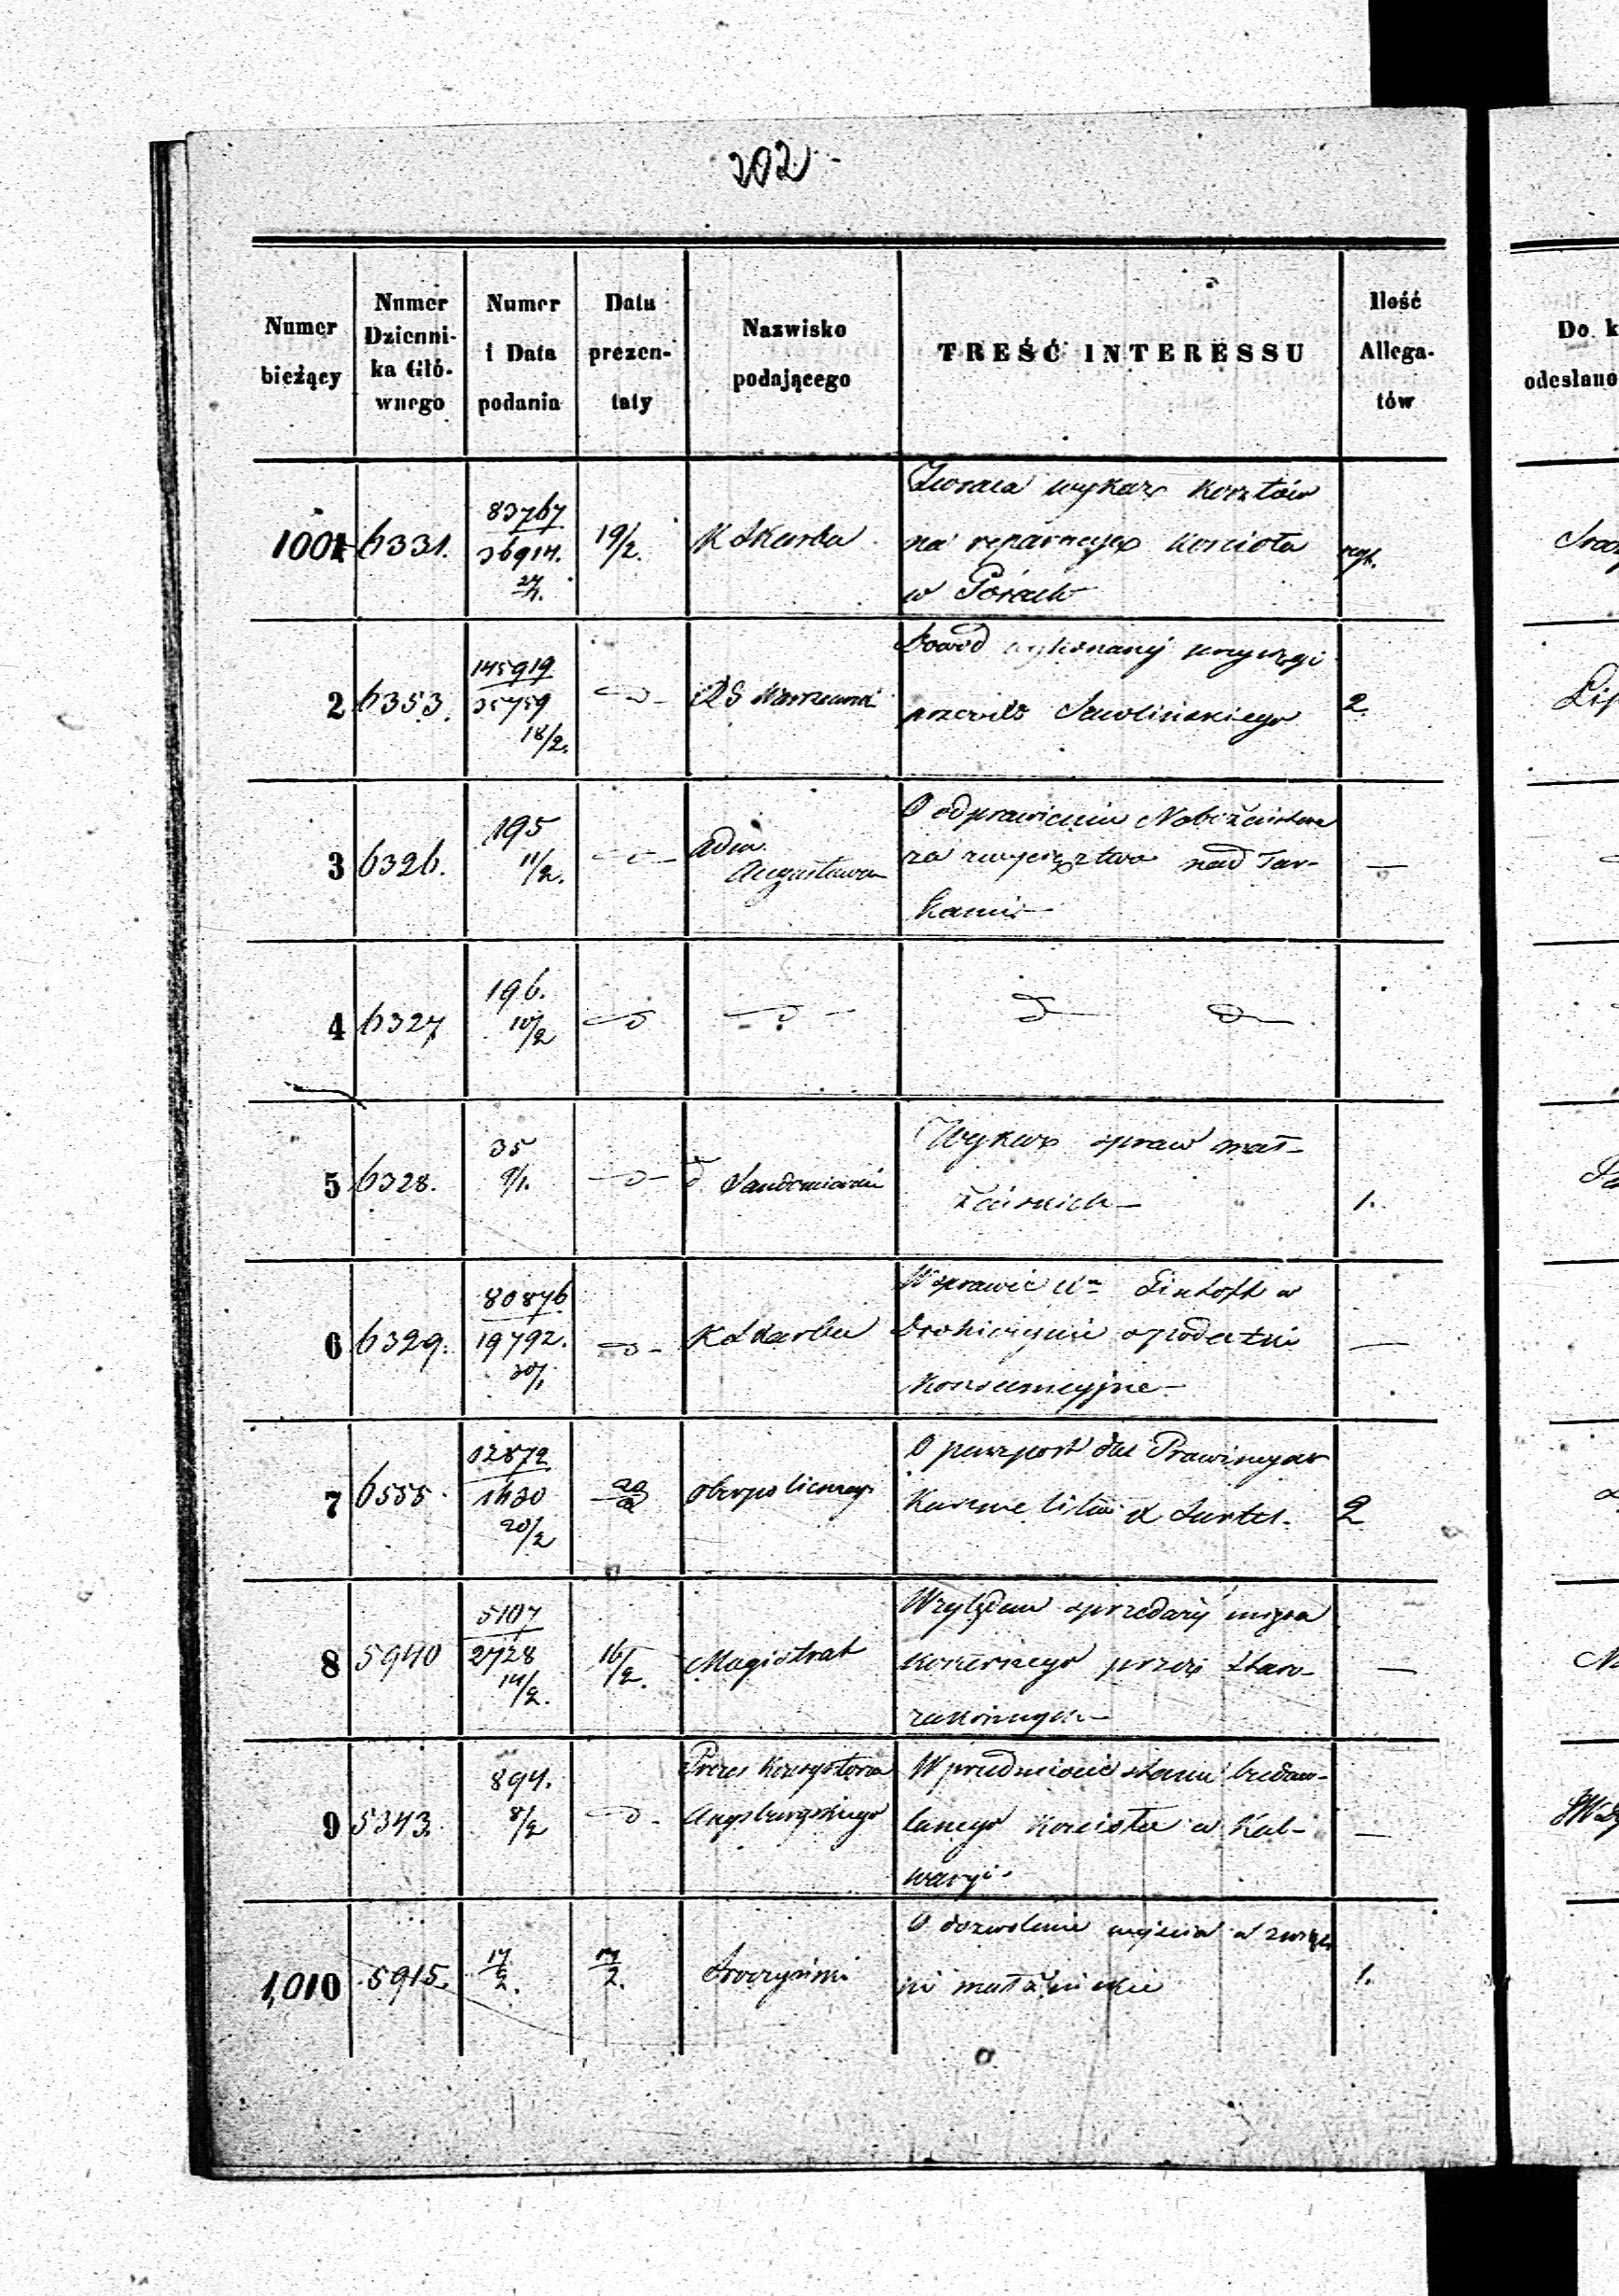 202
Numer bieżący
Numer Dzienni-ka Głó-wnego
Numer i Data podania
Data prezen-taty
Nazwisko podającego
TREŚĆ INTERESSU
Ilość Allega-tów
Do k
odesłano
1001 6331. 83767 36914. 19/2. K Skarbu
Zwraca wykaz kosztów
na reparacyę kościoła
w Górach
2 6353. 145919 35759 18/2. RG Warszawski
Dowód wykonanej przysięgi
przez Xdz 2.
3 6326. 195 11/2. Adm. Augustowa
O odprawieniu Nabożeństwa
za zwycięztwa nad Tur-
kami —
4 6327 196. 10/2
5 6328. 35 9/1. Sandomierski
Wykaz spraw mał-
żeńskich — 1.
6 6329. 80876 19792. 30/1 K Skarbu
W sprawie w
o podatki
konsumcyjne —
7 6555 12872 1430 20/2 20/2 Oberpolicmajs
O paszport dla
2
8 5940 5107 2728 14/2. 16/2. Magistrat
Względem sprzedaży mięsa
koszernego przez staro-
zakonnych —
9 5343. 894. 8/2 Prezes Konsystorza Augsburgskiego
W przedmiocie stanu budow-
lanego kościoła w Kal-
waryi
1,010 5915. 17/2. 17/2.
O dozwolenie wejścia w związ
ki małżeńskie 1.